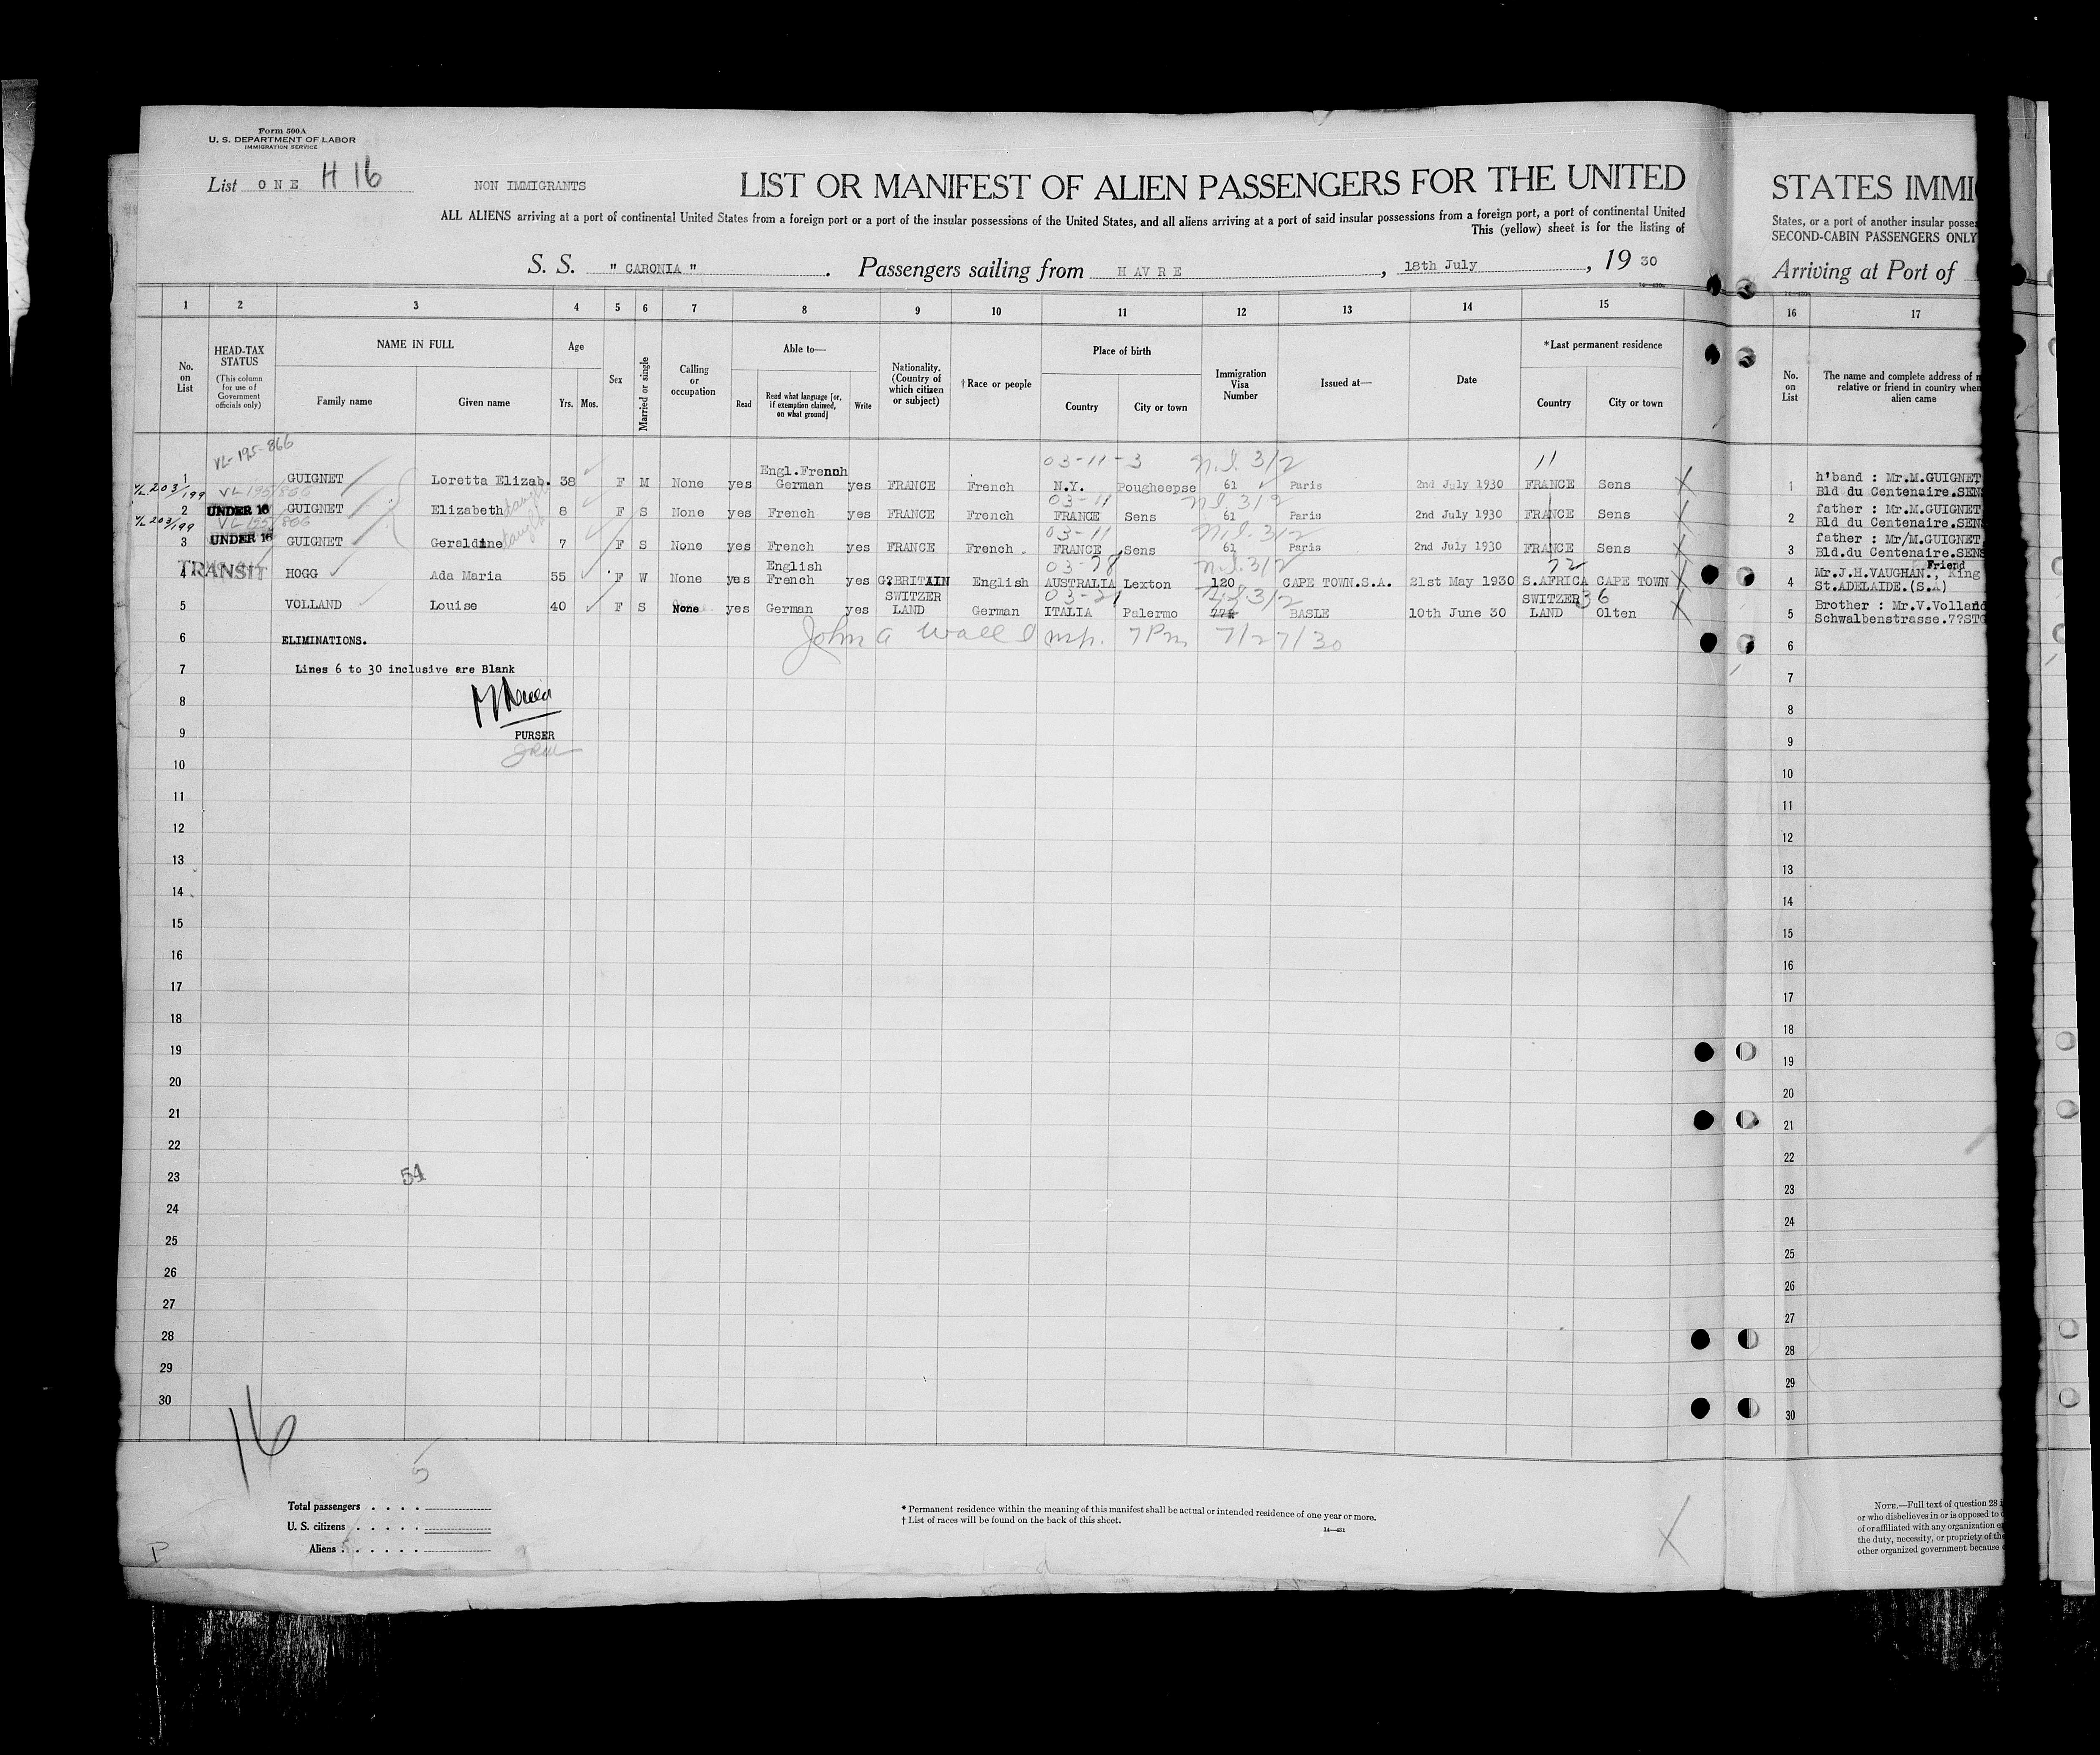 Form 500A
U. S. DEPARTMENT OF LABOR
IMMIGRATION SERVICE
List ONE H 16
NON IMMIGRANTS
LIST OR MANIFEST OF ALIEN PASSENGERS FOR THE UNITED
ALL ALIENS arriving at a port of continental United States from a foreign port or a port of the insular possessions of the United States, and all aliens arriving at a port of said insular possessions from a foreign port, a port of continental United
This (yellow) sheet is for the listing of
S. S. " CARONIA " . Passengers sailing from HAVRE , 18th July , 19 30
STATES IMMI
States, or a port of another insular
SECOND-CABIN PASSENGERS ONLY
Arriving at Port of
1 2 3 4 5 6 7 8 9 10 11 12 13 14 15 16 17
No. on List
HEAD-TAX STATUS (This column for use of Government officials only)
NAME IN FULL
Family name Given name
Age
Yrs. Mos.
Sex
Married or single
Calling or occupation
Able to—
Read
Read what language [or, if exemption claimed, on what ground]
Write
Nationality. (Country of which citizen or subject)
†Race or people
Place of birth
Country City or town
Immigration Visa Number
Issued at—
Date
*Last permanent residence
Country City or town
No. on List
The name and complete address of
relative or friend in country
alien came
VL-195-866
03-11-3 N.I. 3/2 11
1 GUIGNET Loretta Elizab. 38 F M None yes Engl.Frennh German yes FRANCE French N.Y. Pougheepse 61 Paris 2nd July 1930 FRANCE Sens X
V/L 203/199 VL 195/866
03-11 N.I. 3/2
2 UNDER 16 GUIGNET Elizabeth daught 8 F S None yes French yes FRANCE French FRANCE Sens 61 Paris 2nd July 1930 FRANCE Sens X
V/L 203/199 VL 195/866
03-11 N.I. 3/2
3 UNDER 16 GUIGNET Geraldine daught 7 F S None yes French yes FRANCE French FRANCE Sens 61 Paris 2nd July 1930 FRANCE Sens X
03-78 N.I. 3/2 72
4 TRANSIT HOGG Ada Maria 55 F W None yes English French yes G?BRITAIN English AUSTRALIA Lexton 120 CAPE TOWN.S.A. 21st May 1930 S.AFRICA CAPE TOWN X
03-21 N.I. 3/2 36
5 VOLLAND Louise 40 F S None yes German yes SWITZER LAND German ITALIA Palermo BASLE 10th June 30 SWITZER LAND Olten X
6 ELIMINATIONS.
John A Wall Insp. 7 Pm 7/27/30
7 Lines 6 to 30 inclusive are Blank
8
9 PURSER
10
11
12
13
14
15
16
17
18
19
20
21
22
23 54
24
25
26
27
28
29
30
1 h'band : Mr.M.GUIGNET
Bld du Centenaire.SENS
2 father : Mr.M.GUIGNET
Bld du Centenaire.SENS
3 father : Mr/M.GUIGNET
Bld.du Centenaire.SENS
Friend
4 Mr.J.H.VAUGHAN., King
St.ADELAIDE.(S.A)
5 Brother : Mr.V.Volland
Schwalbenstrasse.7?STG
6
7
8
9
10
11
12
13
14
15
16
17
18
19
20
21
22
23
24
25
26
27
28
29
30
16
5
Total passengers . . . .
U. S. citizens . . . . .
Aliens . . . . . .
* Permanent residence within the meaning of this manifest shall be actual or intended residence of one year or more.
† List of races will be found on the back of this sheet.
14—431
P
X
NOTE.—Full text of question 28
or who disbelieves in or is opposed to
of or affiliated with any organization
the duty, necessity, or propriety of the
other organized government because